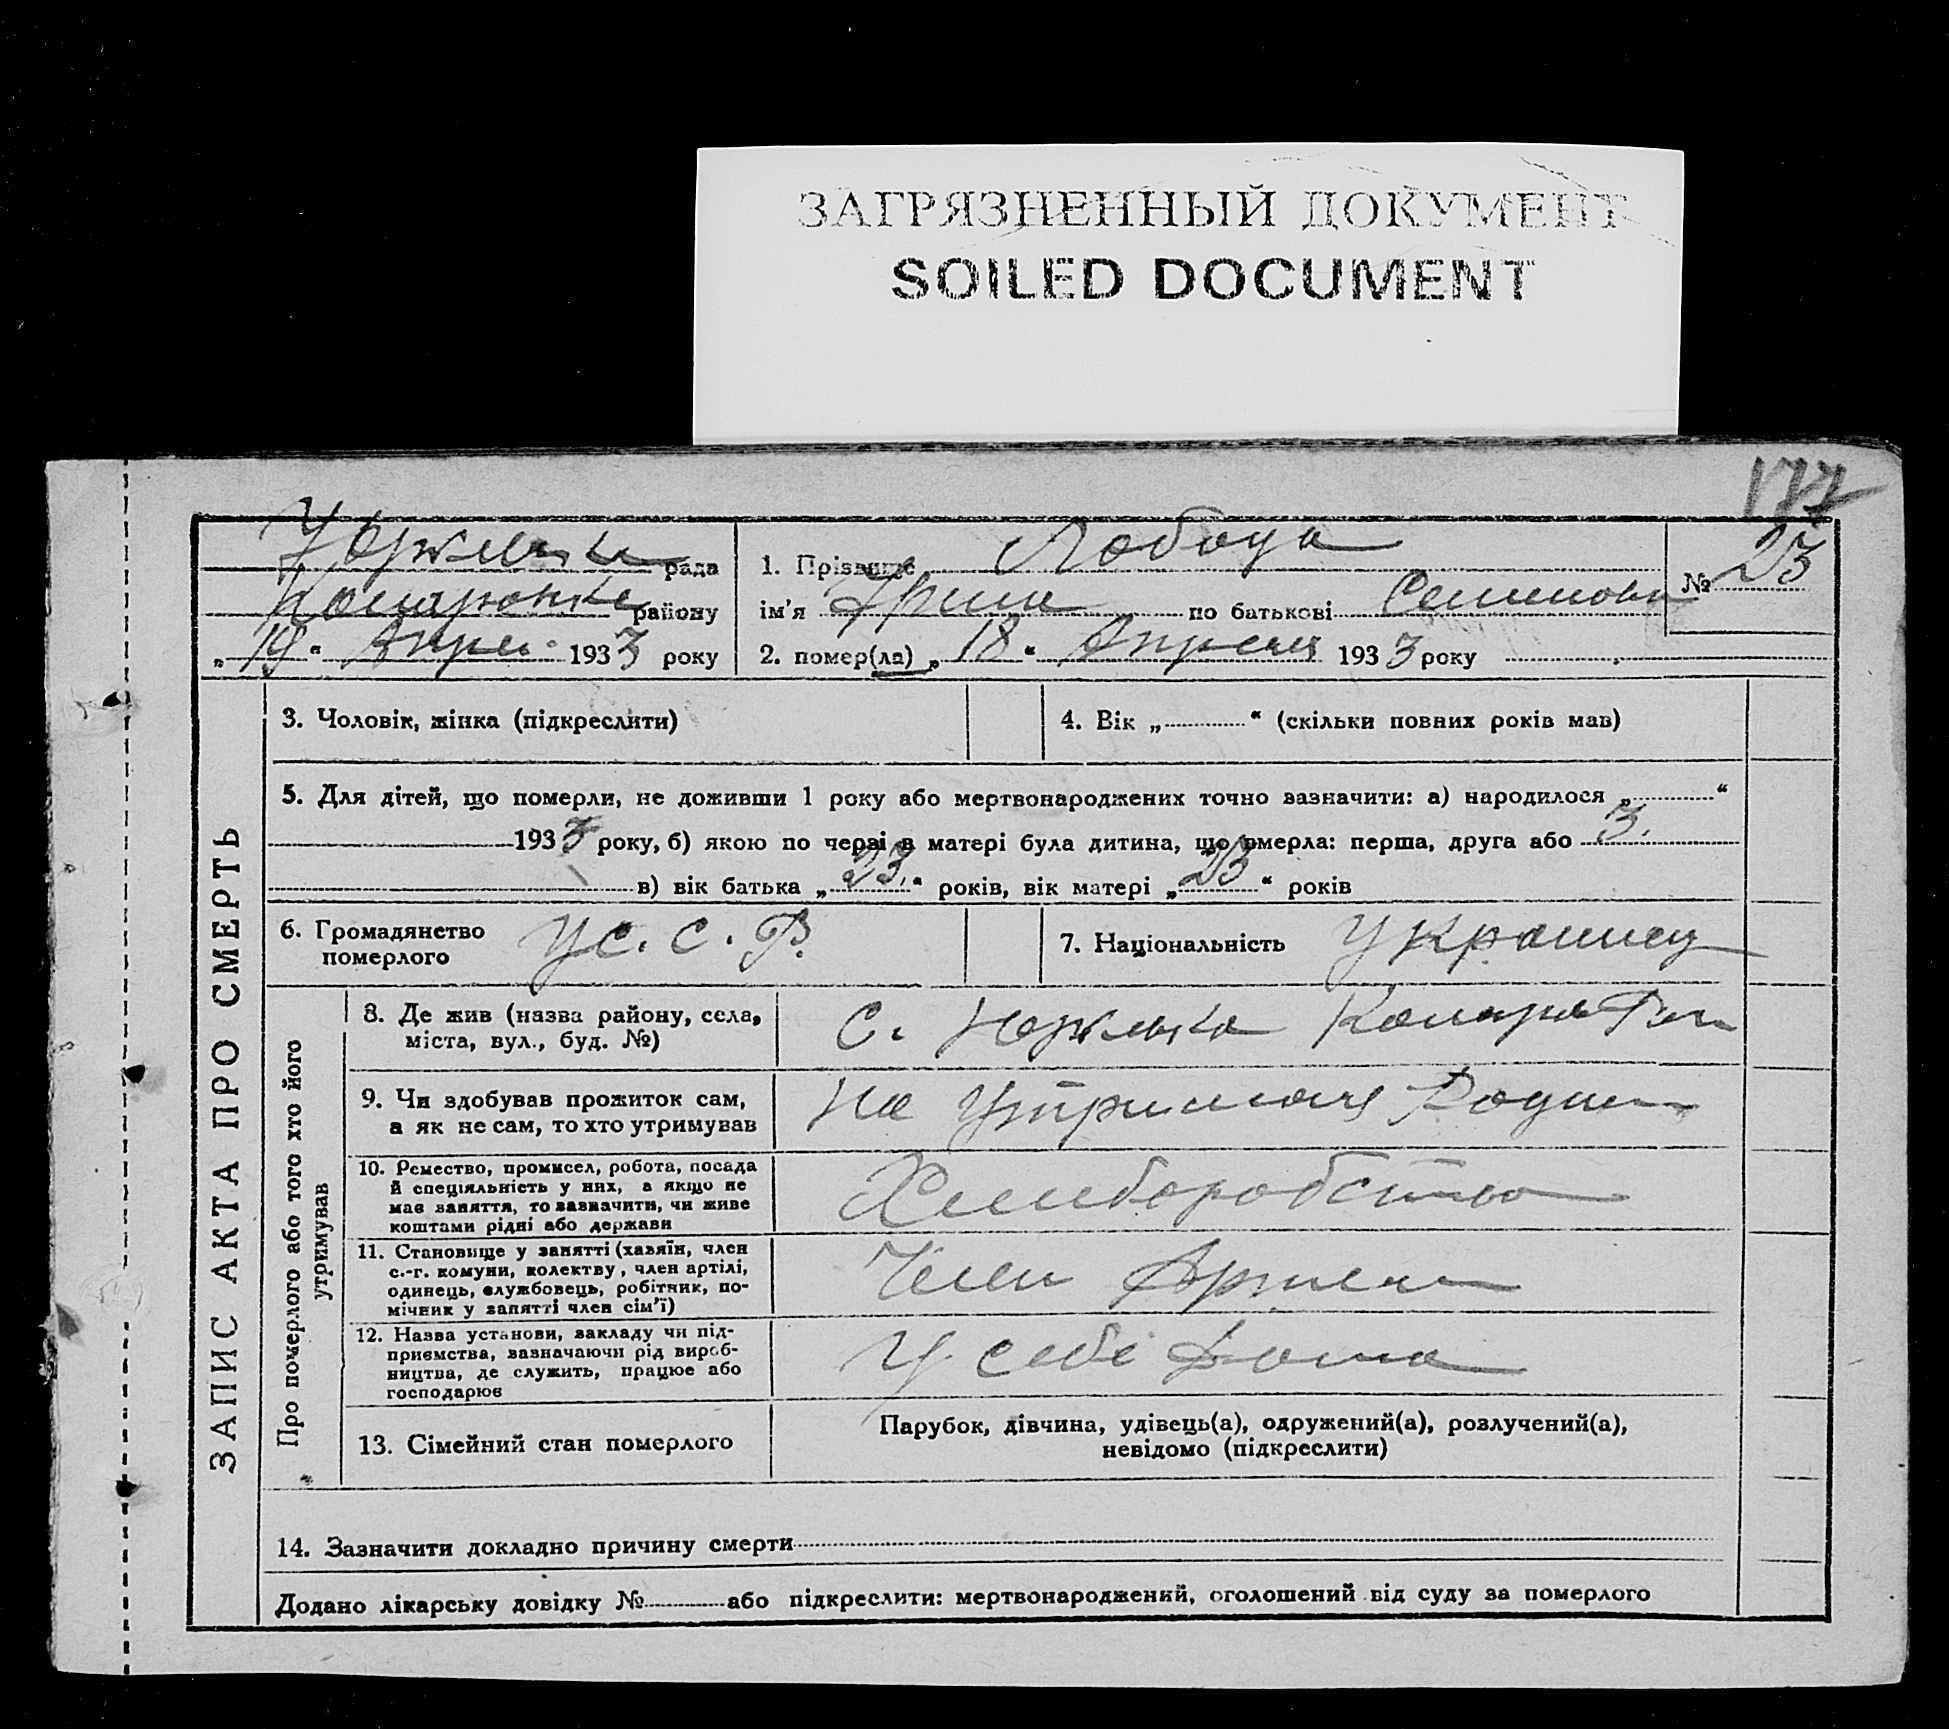 ЗАГРЯЗНЕННЫЙ ДОКУМЕНТ
SOILED DOCUMENT
177
рада
району
„19“ Апрел. 1933 року
1. Прізвище Лобода
ім'я по батькові Семенова
2. помер(ла) „18“ Апреля 1933 року
№ 23
ЗАПИС АКТА ПРО СМЕРТЬ
3. Чоловік, жінка (підкреслити)
4. Вік „ “ (скільки повних років мав)
5. Для дітей, що померли, не доживши 1 року або мертвонароджених точно зазначити: а) народилося „ “
1933 року, б) якою по черзі в матері була дитина, що вмерла: перша, друга або 3.
в) вік батька „23.“ років, вік матері „23“ років
6. Громадянство
померлого
У С. С. Р.
7. Національність Украинец
Про померлого або того хто його
утримував
8. Де жив (назва району, села,
міста, вул., буд. №)
с.
9. Чи здобував прожиток сам,
а як не сам, то хто утримував
На Утриманя Родини
10. Ремество, промисел, робота, посада
й спеціяльність у них, а якщо не
має заняття, то зазначити, чи живе
коштами рідні або держави
Хлеборобство
11. Становище у занятті (хазяїн, член
с.-г. комуни, колектву, член артілі,
одинець, службовець, робітник, по-
мічник у занятті член сім'ї)
Член Артели
12. Назва установи, закладу чи під-
приємства, зазначаючи рід вироб-
ництва, де служить, працює або
господарює
У себе дома
13. Сімейний стан померлого
Парубок, дівчина, удівець(а), одружений(а), розлучений(а),
невідомо (підкреслити)
14. Зазначити докладно причину смерти
Додано лікарську довідку № або підкреслити: мертвонароджений, оголошений від суду за померлого